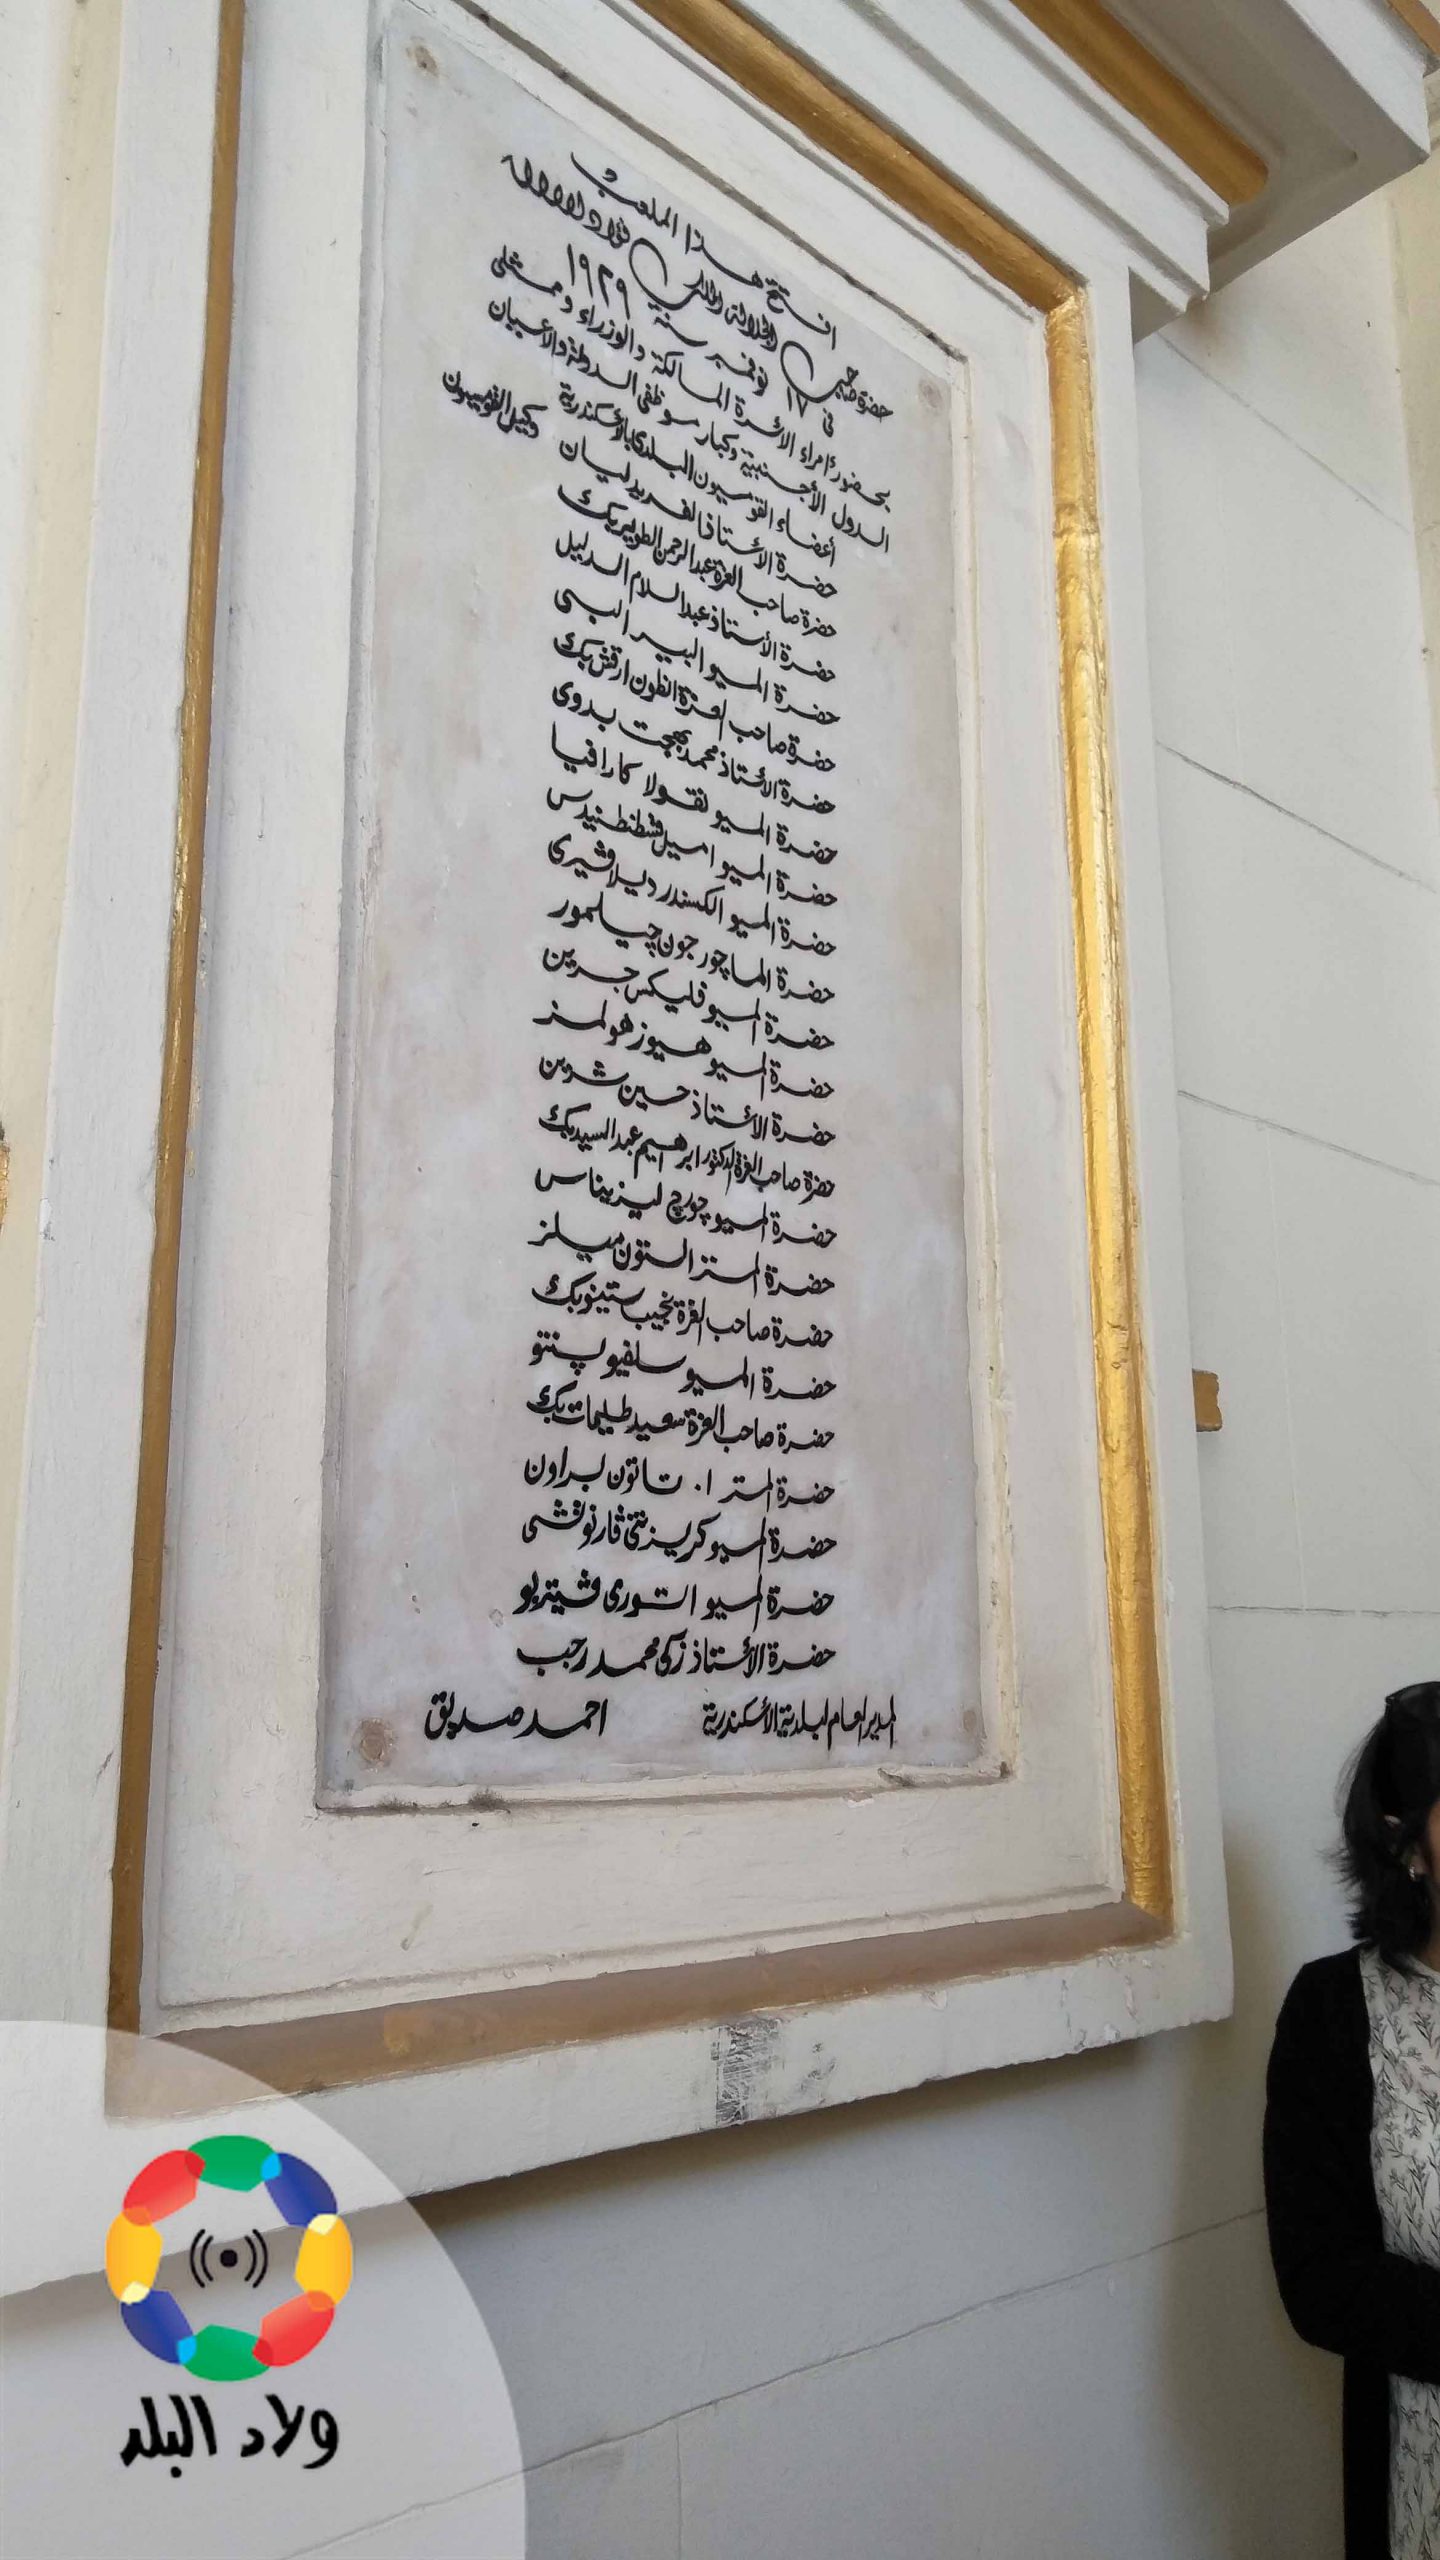 افتتح هذا الملعب
حضرة صاحب الجلالة الملك فؤاد الأول
فى ١٧ نوفمبر سنة ١٩٢٩
بحضور أمراء الأسرة المالكة والوزراء وممثلى
الدول الأجنبية وكبار موظفى الدولة والأعيان
أعضاء القومسيون البلدى بالأسكندرية
حضرة الأستاذ الفريد ليان وكيل القومسيون
حضرة صاحب العزة عبد الرحمن الطوير بك
حضرة الأستاذ عبد السلام الدليل
حضرة المسيو البير
حضرة صاحب العزة انطون ارقش بك
حضرة الأستاذ محمد بهجت بدوى
حضرة المسيو نقولا كارافيا
حضرة المسيو اميل قسطنطنيدس
حضرة المسيو الكسندر ديلاڤيرى
حضرة الماچور جون چيلمور
حضرة المسيو فليكس جرين
حضرة المسيو هيوز هولمز
حضرة الأستاذ حسين شرين
حضرة صاحب العزة الدكتور ابرهيم عبد السيد بك
حضرة المسيو چورچ ليزيناس
حضرة المستر الستون ميلز
حضرة صاحب العزة نجيب ستينو بك
حضرة المسيو سلفيو پنتو
حضرة صاحب العزة سعيد طليمات بك
حضرة المستر ا. تاتون براون
حضرة المسيو كريزنتى
حضرة المسيو اتورى ڤيتربو
حضرة الأستاذ زكى محمد رجب
المدير العام لبلدية الأسكندرية احمد صديق
ولاد البلد